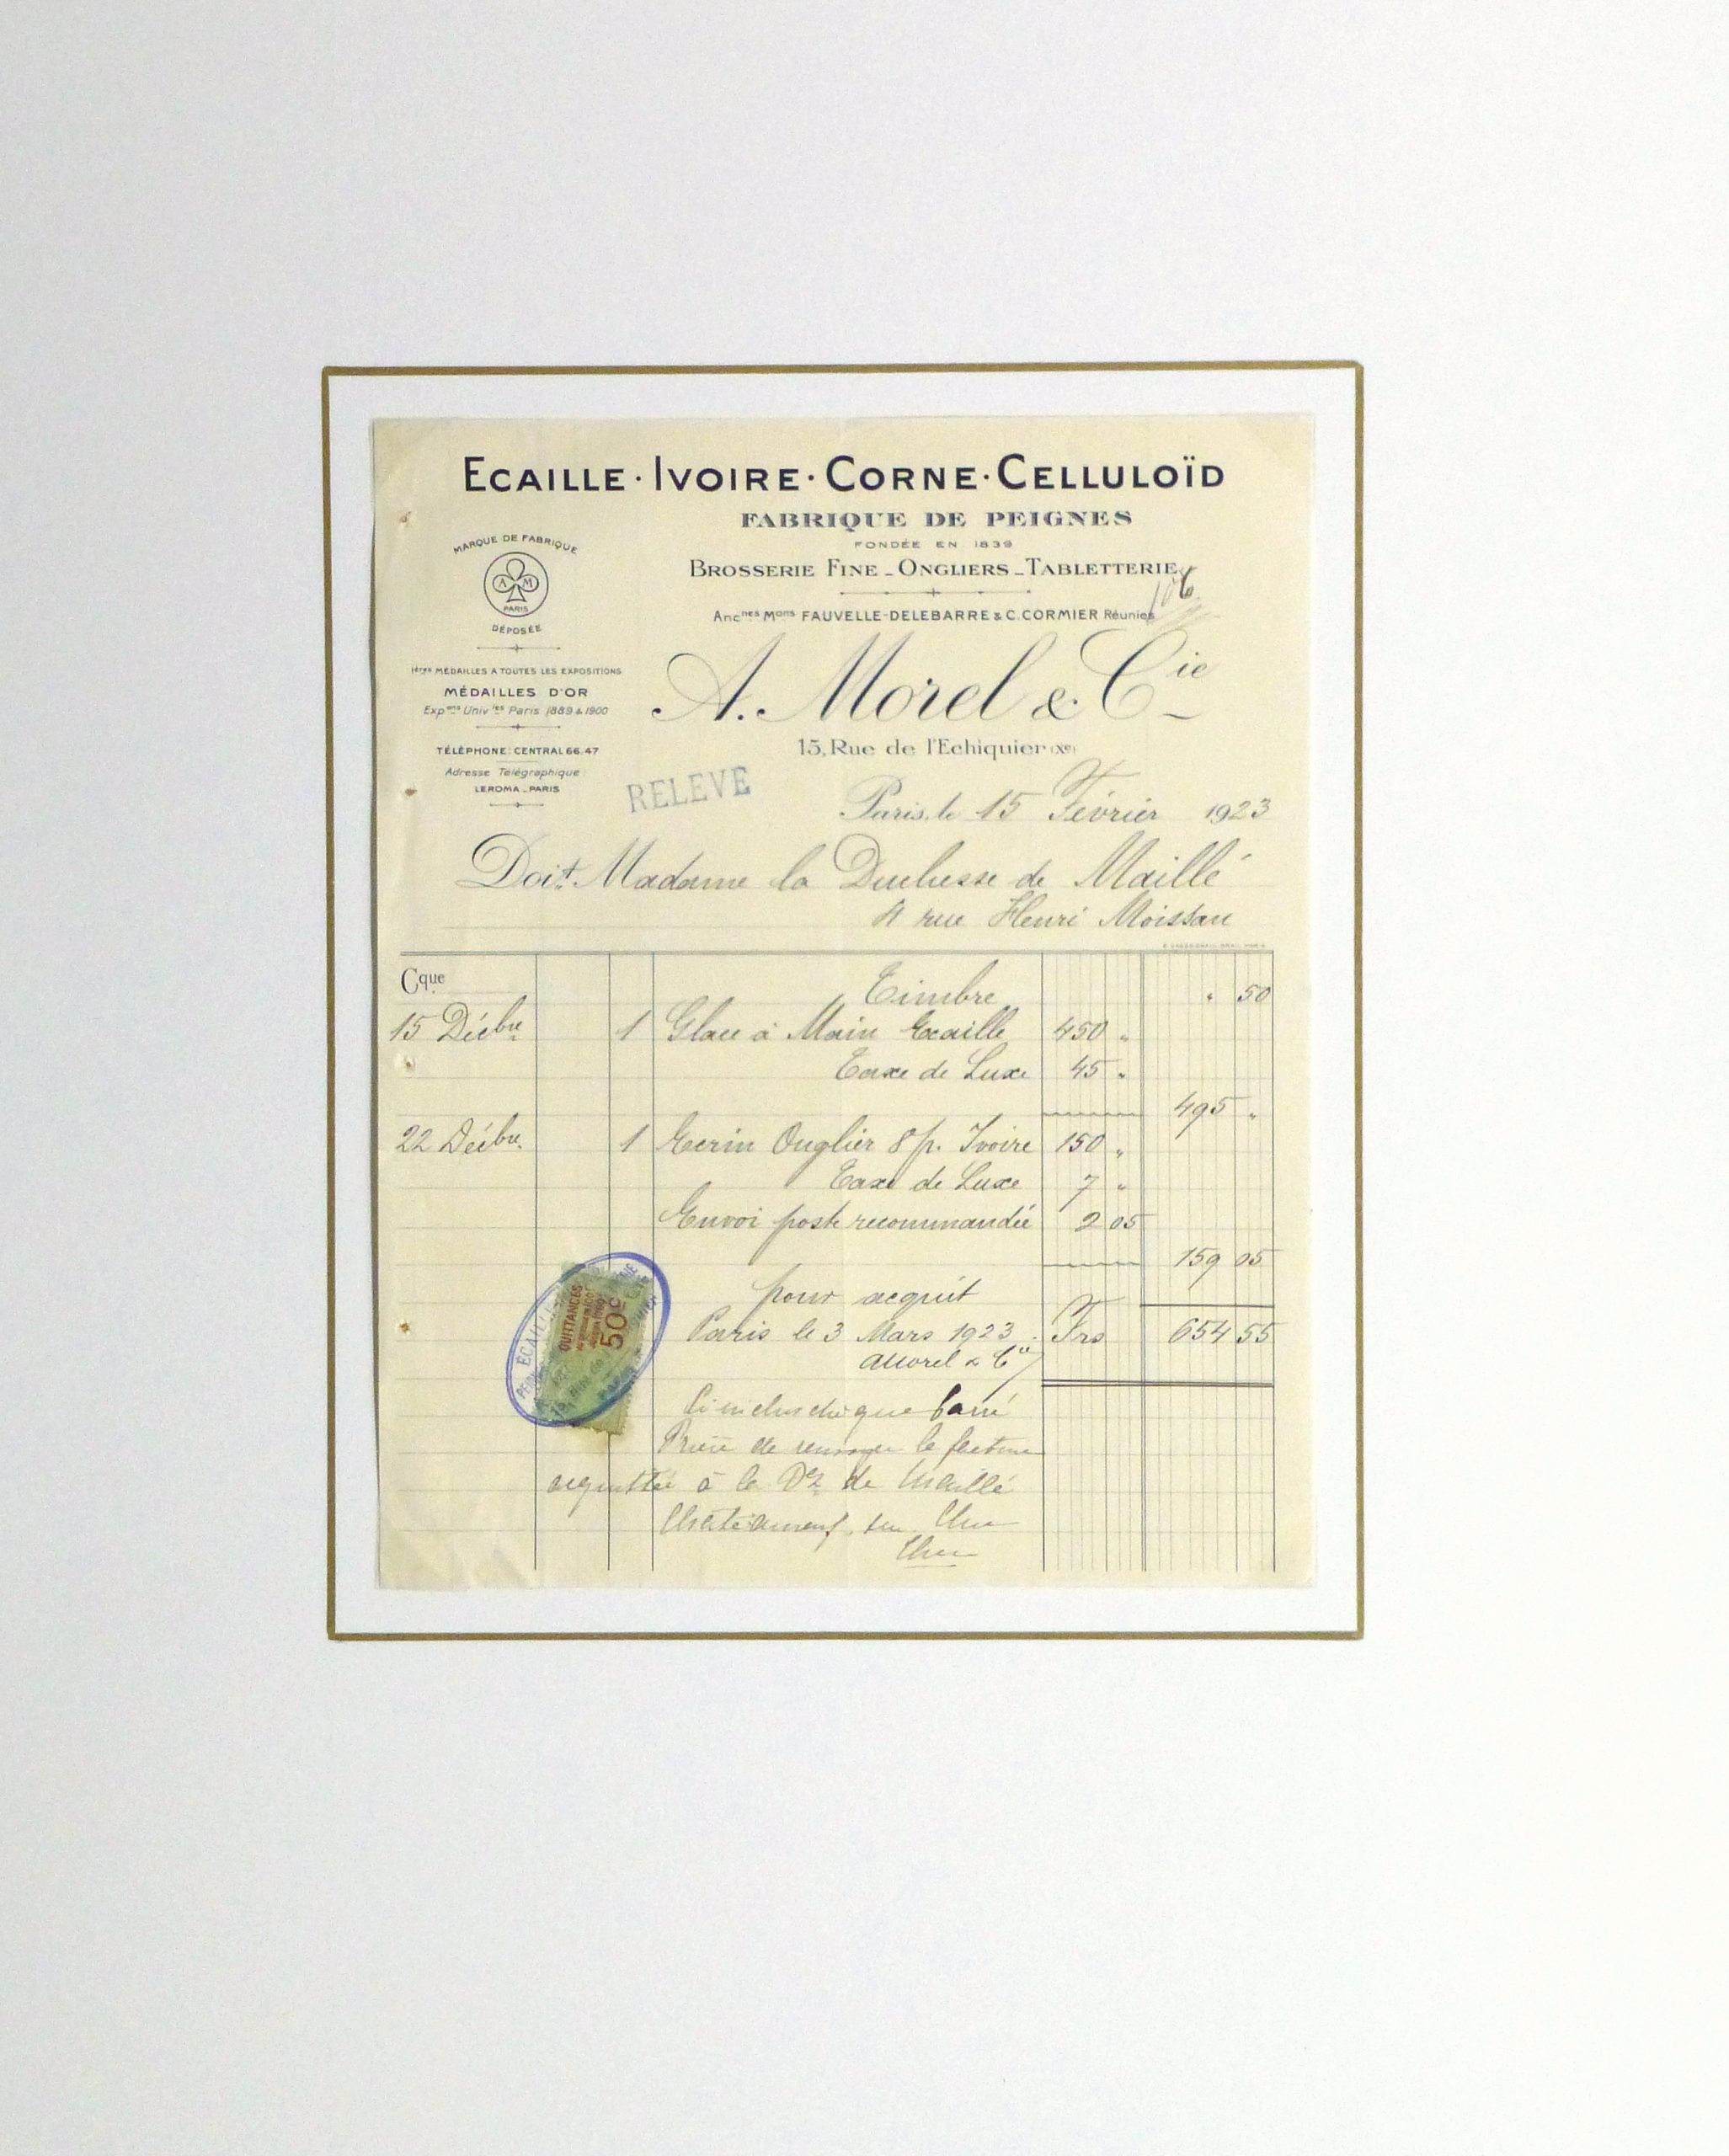 ECAILLE · IVOIRE · CORNE · CELLULOÏD
FABRIQUE DE PEIGNES
FONDÉE EN 1839
BROSSERIE FINE _ ONGLIERS _ TABLETTERIE
106
Anc^nes M^ons FAUVELLE-DELEBARRE & C. CORMIER Réunies
A. Morel & C^ie
15, Rue de l'Echiquier (X^e)
MARQUE DE FABRIQUE
A M
PARIS
DÉPOSÉE
1^ères MÉDAILLES A TOUTES LES EXPOSITIONS
MÉDAILLES D'OR
Exp^ons Univ^les Paris 1889 & 1900
TÉLÉPHONE: CENTRAL 66.47
Adresse Télégraphique
LEROMA _ PARIS
RELEVÉ
Paris, le 15 Février 1923
Doit Madame la Duchesse de Maillé
4 rue Henri Moissan
C^que
Timbre " 50
15 Décbre 1 Glace à Main Ecaille 450 "
Taxe de Luxe 45 "
495 "
22 Décbre 1 Ecrin Onglier 8 p. Ivoire 150 "
Taxe de Luxe 7 "
Envoi poste recommandée 2 05
159 05
pour acquit
Paris le 3 Mars 1923. Frs 654 55
AMorel & C^ie
QUITTANCES
50^c
ÉCAILLE
Ci inclus chèque barré
Prière de renvoyer la facture
acquittée à la D^sse de Maillé
Chateauneuf sur Cher
Cher